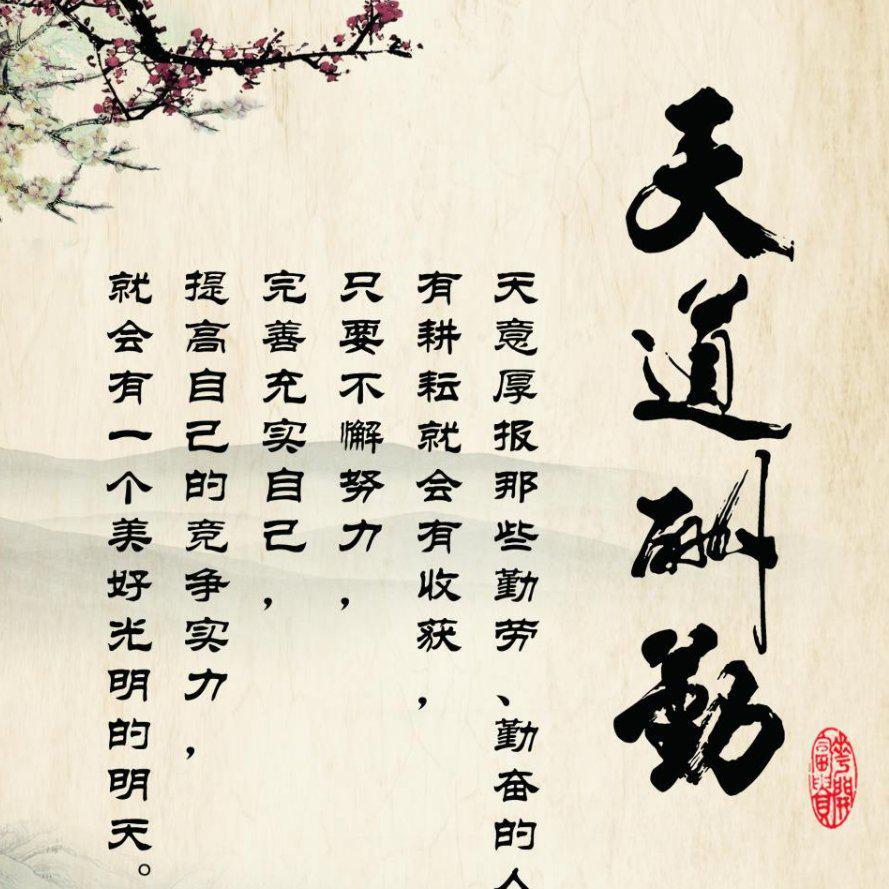 天道酬勤
花開富貴
天意厚报那些勤劳、勤奋的人
有耕耘就会有收获，
只要不懈努力，
完善充实自己，
提高自己的竞争实力，
就会有一个美好光明的明天。